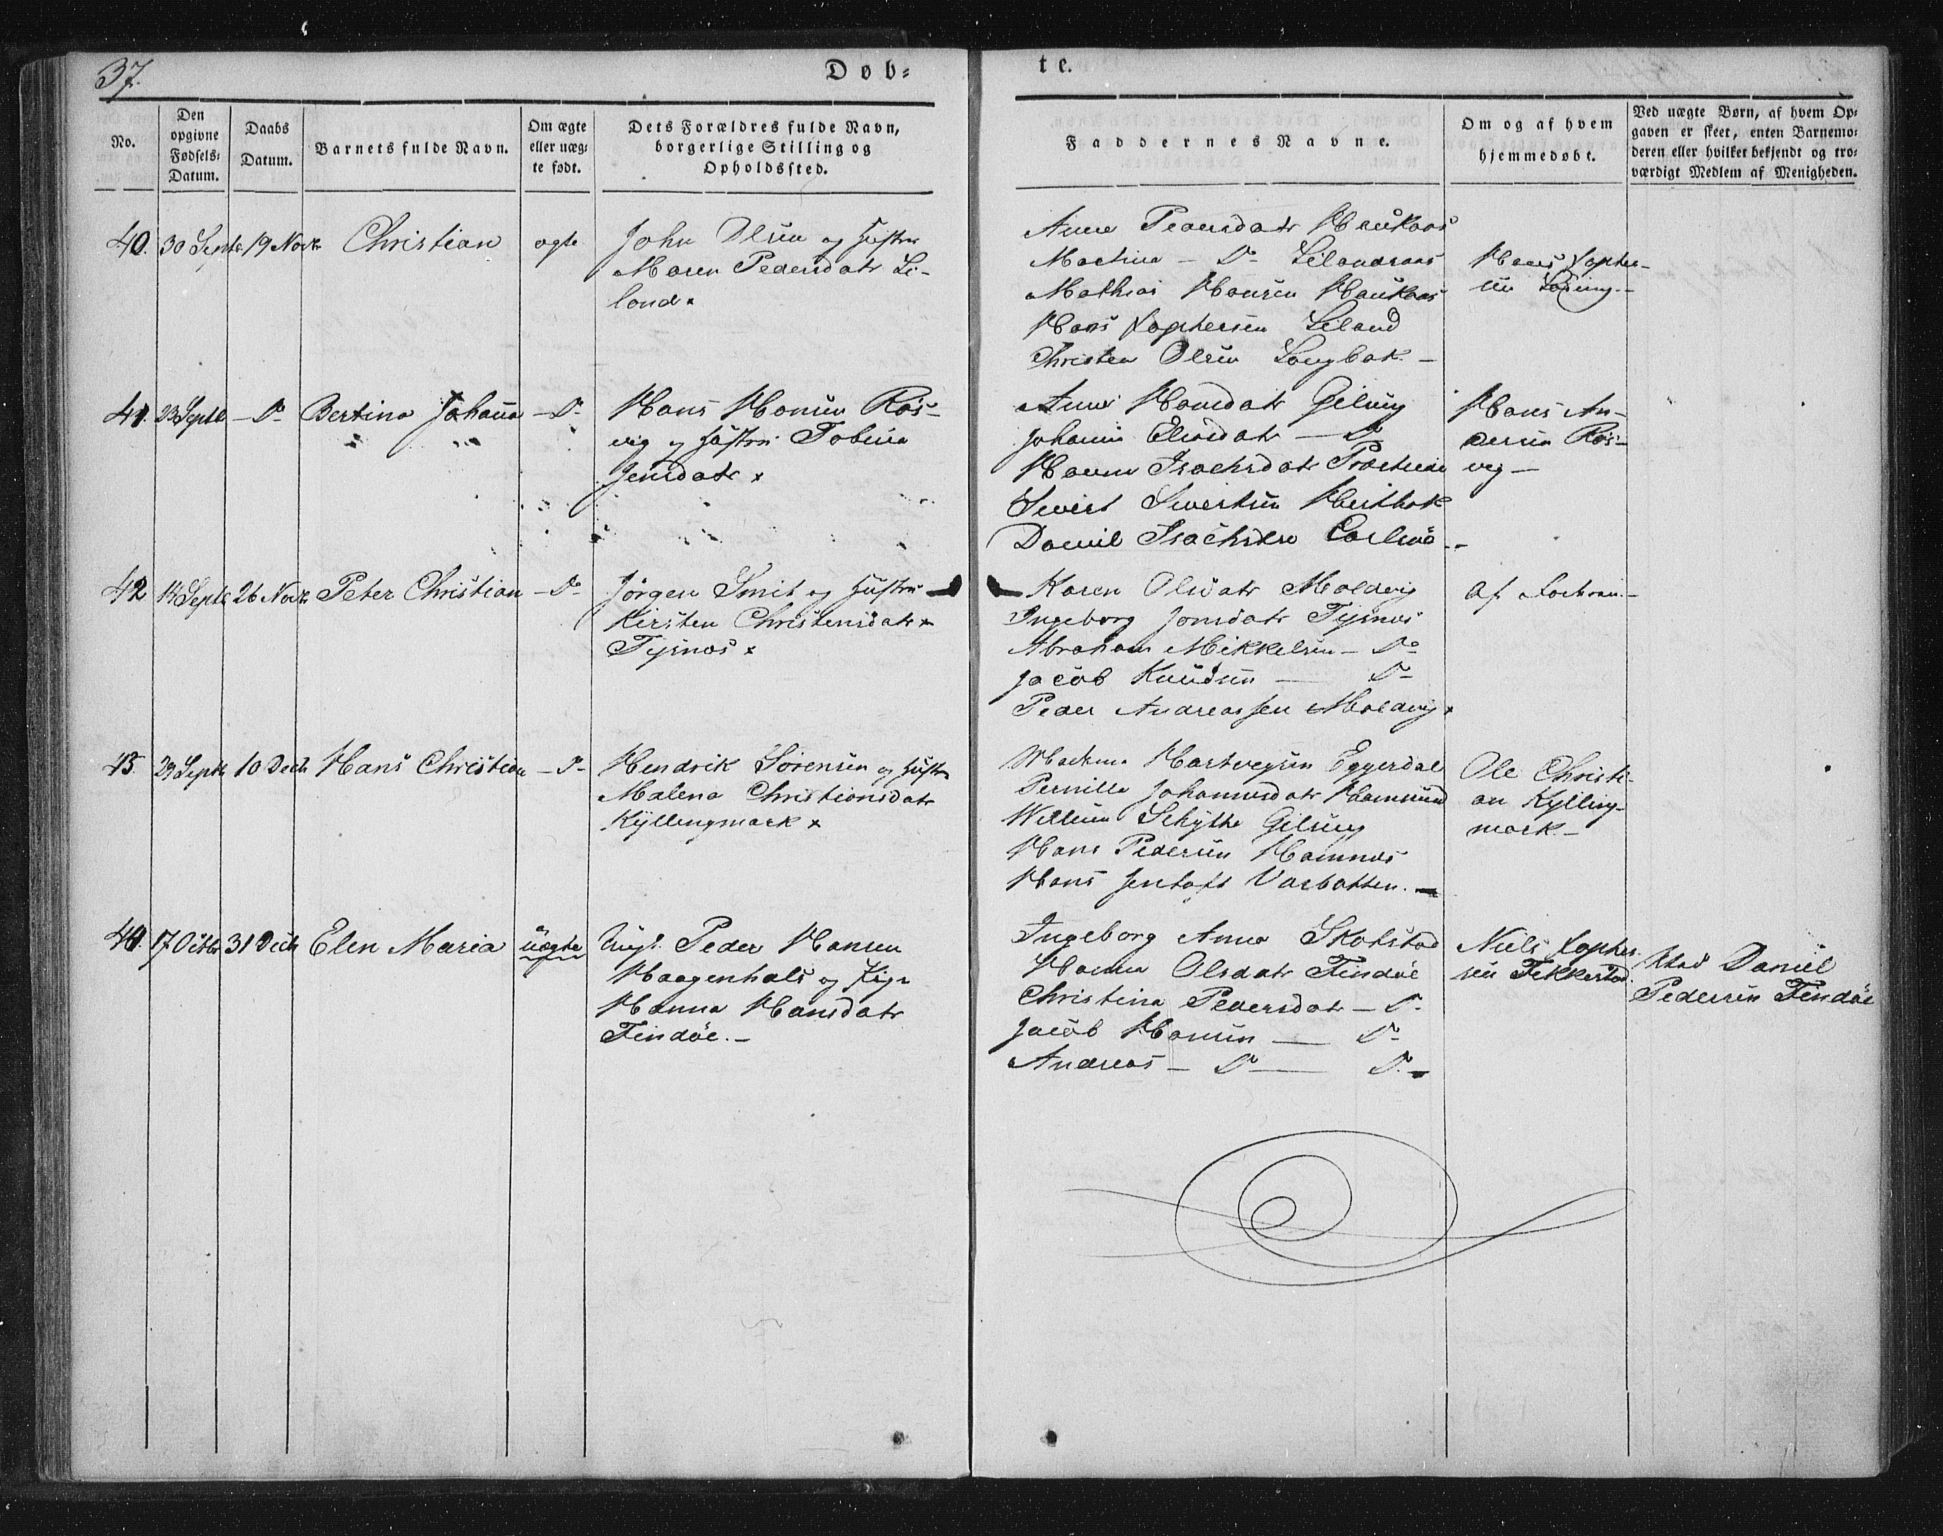 37.
Døb-
te.
No.
Den opgivne Fødsels-Datum.
Daabs Datum.
Barnets fulde Navn.
Om ægte eller uæg-te født.
Dets Forældres fulde Navn, borgerlige Stilling og Opholdssted.
Faddernes Navne.
Om og af hvem hjemmedøbt.
Ved uægte Børn, af hvem Op-gaven er skeet, enten Barnemo-deren eller hvilket bekjendt og tro-værdigt Medlem af Menigheden.
40. 30 Septr 19 Novr Christian ægte
John Olsen og Hustru
Maren Pedersdatr Li-
land
Anne Pedersdatr Haukaas
Martina - Do Lilandsaas
Mathias Hansen Haukaas
Hans Lophersen Leland
Christen Olsen Langbak -
Hans Lopher-
sen
41. 23 Septr - Do Bertina Johanna - Do
Hans Hansen Røs-
vig og Hustru Tobina
Jensdatr
Anne Hansdatr Gilsng
Johanna Eliasdatr - Do
Hanna Isachsdatr
Sivert Sivertsen
Daniel Isachsen
Hans An-
dersen Røs-
vig -
42 14 Septr 26 Novr Peter Christian - Do
Jørgen Smit og Hustru
Kirsten Christensdatr
Tysnes
Karen Olsdatr Molvig
Ingeborg Jonsdatr Tysnes
Abraham Mikkelsen - Do
Jacob Knudsen - Do
Peder Andreassen Molvig
Af
43. 29 Septr 10 Decbr Hans Christian - Do
Hendrik Sørensen og Hustru
Malena Christiansdatr
Kyllingmark
Hartvigsen Eggerdal
Pernilla Johannesdatr Hamsund
Willum Schytte Gilsng
Hans Pedersen Hamnes
Hans Jentoft Varbatten. -
Ole Christi-
an Kylling-
mark -
44 17 Octbr 31 Decbr Elen Maria uægte
Ungk. Peder Hansen
Haagenhals og Pige
Hanna Hansdatr
Findøe. -
Ingeborg Anna Skotstad
Hanna Olsdatr Findøe
Christina Pedersdatr - Do
Jacob Hansen - Do
Andreas - Do - Do -
Niels Lopher-
sen Tekkestad
Daniel
Pedersen Findøe